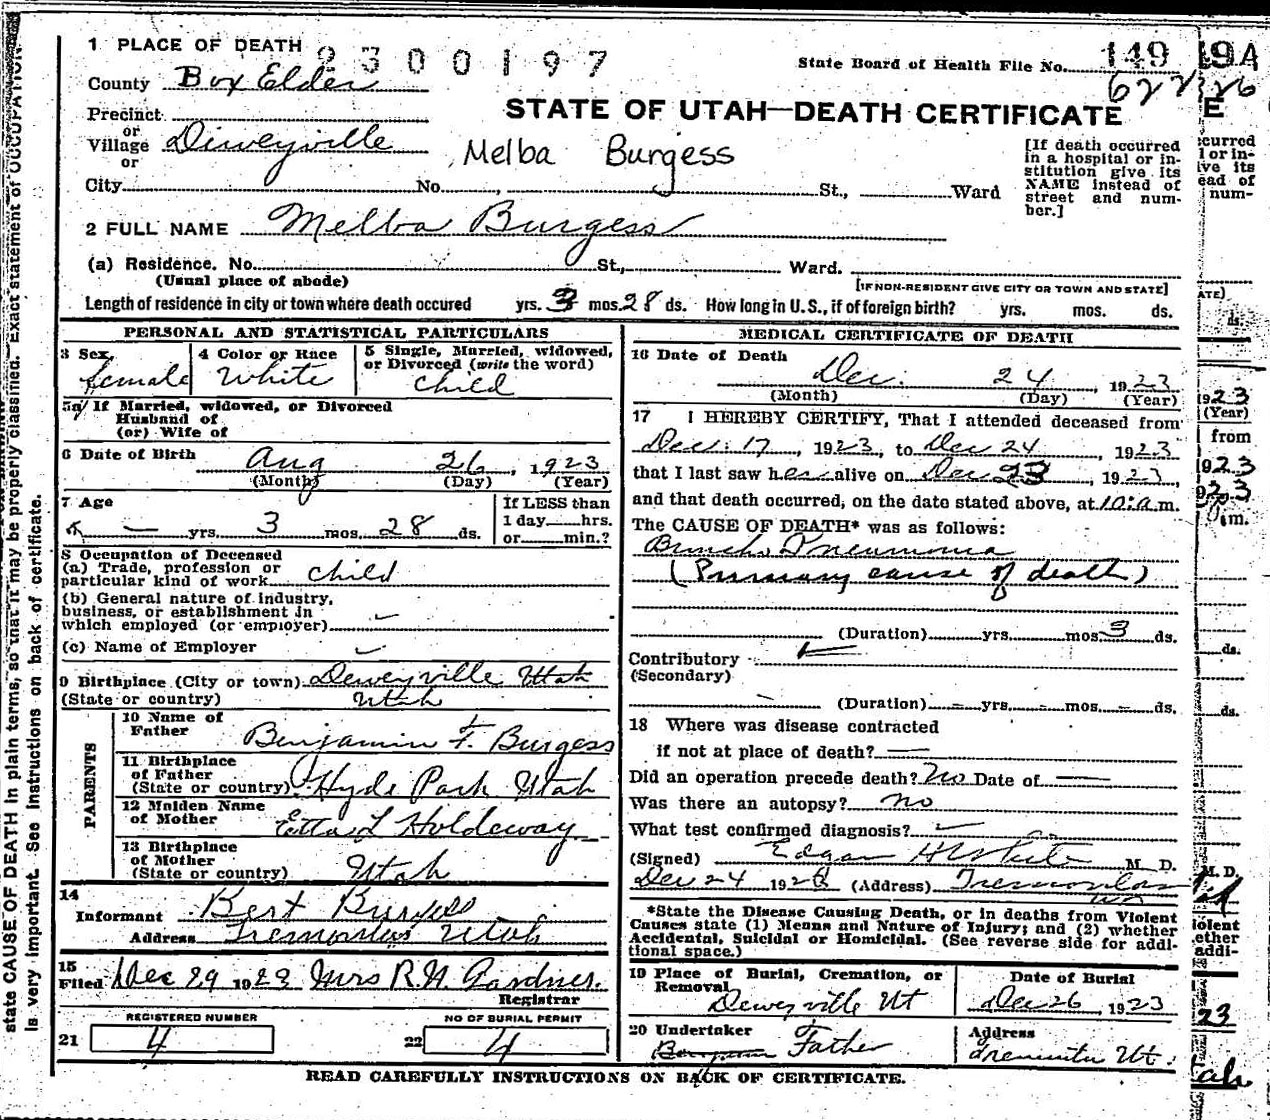 1 PLACE OF DEATH
2300197
State Board of Health File No. 149
County Box Elder
622
STATE OF UTAH—DEATH CERTIFICATE
Precinct
or
Village Deweyville
or
Melba Burgess
[If death occurred in a hospital or institution give its NAME instead of street and number.]
City No. , St., Ward
2 FULL NAME Melba Burgess
(a) Residence. No. St., Ward.
(Usual place of abode) [IF NON-RESIDENT GIVE CITY OR TOWN AND STATE]
Length of residence in city or town where death occured yrs. 3 mos. 28 ds. How long in U.S., if of foreign birth? yrs. mos. ds.
PERSONAL AND STATISTICAL PARTICULARS
3 Sex, female
4 Color or Race White
5 Single, Married, widowed, or Divorced (write the word)
child
5a If Married, widowed, or Divorced
Husband of
(or) Wife of
6 Date of Birth Aug 26, 1923
(Month) (Day) (Year)
7 Age — yrs. 3 mos. 28 ds.
If LESS than 1 day hrs. or min.?
8 Occupation of Deceased
(a) Trade, profession or particular kind of work child
(b) General nature of industry, business, or establishment in which employed (or employer)
(c) Name of Employer
9 Birthplace (City or town) Deweyville Utah
(State or country) Utah
PARENTS
10 Name of Father Benjamin F. Burgess
11 Birthplace of Father (State or country) Hyde Park Utah
12 Maiden Name of Mother Etta L Holdeway
13 Birthplace of Mother (State or country) Utah
14
Informant Bert Burgess
Address Tremonton Utah
15
Filed Dec 29 1923 Mrs R.H. Gardner.
Registrar
REGISTERED NUMBER
21 4
NO OF BURIAL PERMIT
22 4
MEDICAL CERTIFICATE OF DEATH
16 Date of Death
Dec. 24, 1923
(Month) (Day) (Year)
17 I HEREBY CERTIFY, That I attended deceased from
Dec. 17, 1923, to Dec 24, 1923
that I last saw her alive on Dec 23, 1923,
and that death occurred, on the date stated above, at 10:a.m.
The CAUSE OF DEATH* was as follows:
Bronch. Pneumonia
(Primary cause of death)
(Duration) yrs. mos. 3 ds.
Contributory
(Secondary)
(Duration) – yrs. – mos. – ds.
18 Where was disease contracted
if not at place of death? —
Did an operation precede death? No Date of —
Was there an autopsy? no
What test confirmed diagnosis?
(Signed) Edgar H White M. D.
Dec 24 1923 (Address) Tremonton
*State the Disease Causing Death, or in deaths from Violent
Causes state (1) Menns and Nature of Injury; and (2) whether
Accidental, Suicidal or Homicidal. (See reverse side for addi-
tional space.)
19 Place of Burial, Cremation, or Removal
Deweyville Ut
Date of Burial
Dec 26, 1923
20 Undertaker
Father
Address
Tremonton Ut.
READ CAREFULLY INSTRUCTIONS ON BACK OF CERTIFICATE.
state CAUSE OF DEATH in plain terms, so that it may be properly classified. Exact statement of OCCUPATION
is very important. See instructions on back of certificate.